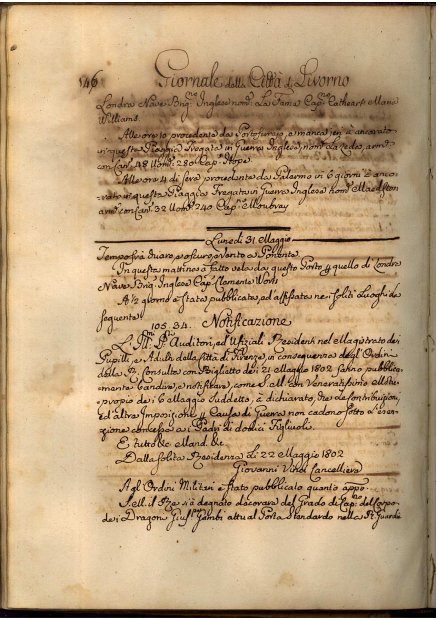 46 Giornale della Città di Livorno
Londra Nave Brig.no Inglese nom.a La Fama Cap.no Cathcart Maria
Williams.
Alle ore 10 procedente da Portoferrajo, è mancò jeri a ancorato
in questa Piaggia Fregata in Guerra Inglese nom.a arm.a
con Can. 48 Uom. 280 Cap. Hope.
Alle ore 4 di sera procedente da Palermo in 6 giorni è anco-
rato in questa Piaggia Fregata in Guerra Inglese nom.a
arm. con Can. 32 Uom. 240 Cap.no Moubray
Lunedì 31. Maggio
Tempo sì vario e oscuro, vento a Ponente
In questa mattina è fatto vela da questo Porto p quello di Londra
Nave Brig. Inglese Cap. Clemente
A ½ giorno è stata pubblicata, ed affissata nei soliti Luoghi la
seguente
105. 34. Notificazione
L. Ill.mi S.ri Auditori, ed Ufiziali Residenti nel Magistrato dei
Pupilli e Adulti della Città di Firenze, in consequenza degl' Ordini
della R. Consulta con Biglietto de i 21 Maggio 1802 fanno pubblica-
mente bandire, e notificare, come S. M. con Veneratissimo Motu-
proprio de i 6 Maggio suddetto, à dichiarato, che le Contribuzioni,
ed' altra Imposizione p Causa di Guerra non cadono sotto l' esen-
zione concessa ai Padri di dodici Figliuoli.
E tutto &c Mand. &c.
Dalla solita Residenza li 22 Maggio 1802
Giovanni Cancelliere
Agl' Ordini Militari è stato pubblicato quanto app.o
S. M. il Re si è degnato decorare del Grado di Cap.no del Corpo
de i Dragoni Gius.e Gambi attual Porta Stendardo nelle R. Guardie